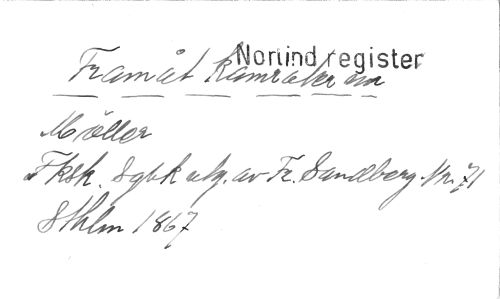 Norlind register
Framåt kamrater m
Möller
Fksk. Sgbk utg. av Fr. Sandberg Nr. 71
Sthlm 1867